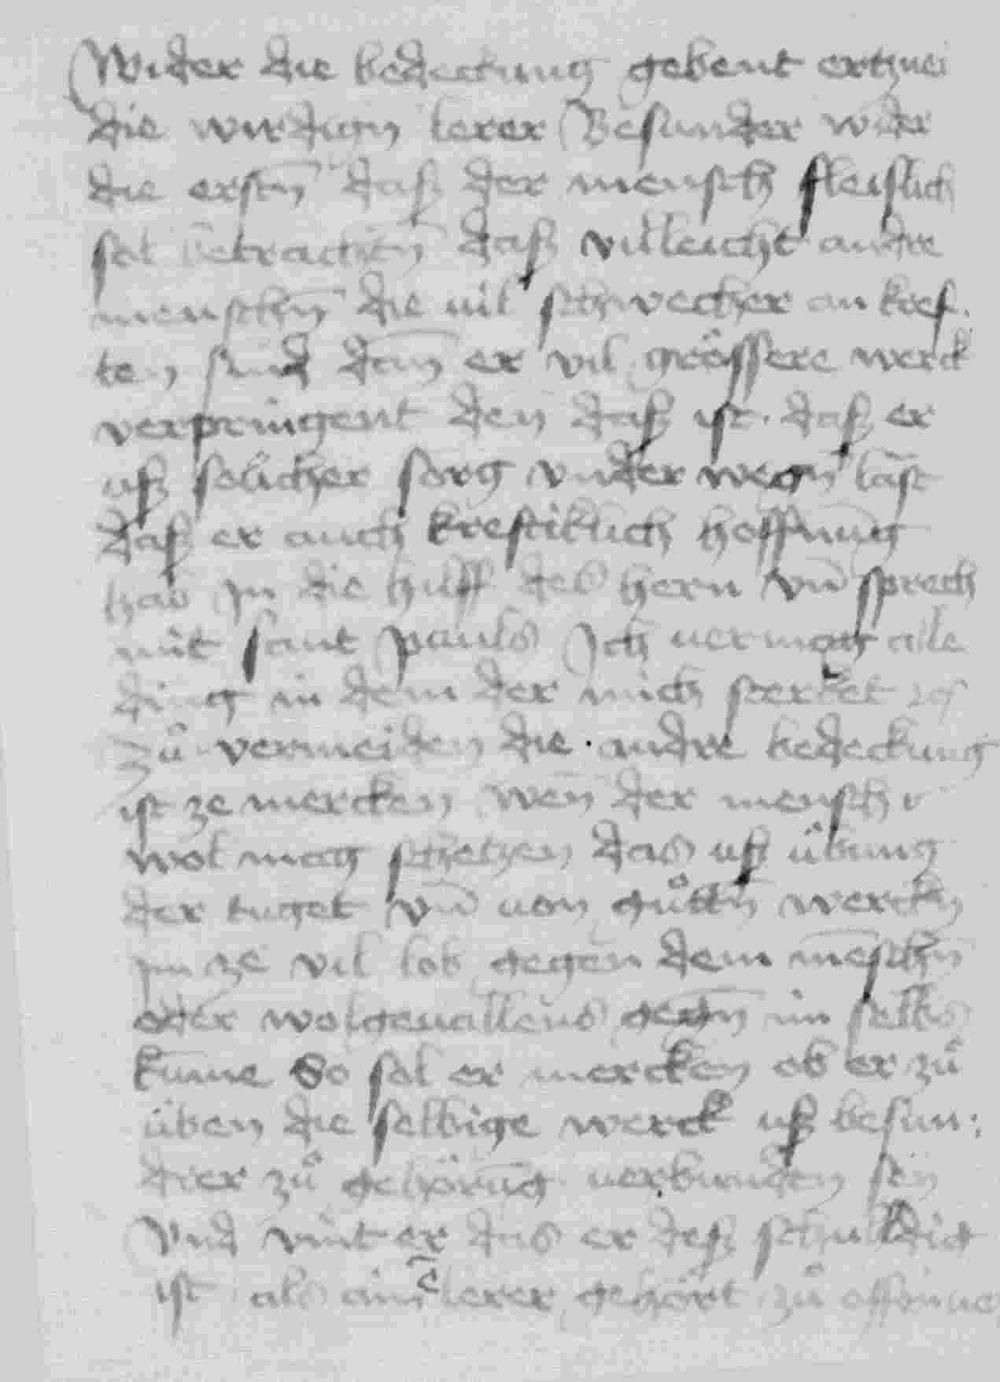 Wider die bedeckung gebent ertznei
die wirdign lerer Besunder wider
die erstn̄ daß der mensch fleislich
sol betrachten̄ daß villeicht andre
menschn̄ die uil schwecher an kref-
ten sind dan̄ er vil grössere werck
verpringent den daß ist · daß er
uß solicher sorg vnder wegn̄ läst
daß er auch kreftiklich hoffnūg
hab Jn die hilff des hern vn̄ sprech
mit sant paulo Jch uermag alle
ding in dem der mich sterket
zů vermeiden die · andre bedeckung
ist ze mercken wen̄ der mensch
wol mag schetzen das uß übung
der tuget vn̄ uon gůttn̄ werckn̄
im ze vil lob gegen dem meschn̄
oder wolgeuallens gegn̄ im selbs
kume So sol er mercken ob er zů
üben die selbige werck uß besun-
drer zů gehörūg uerbundn̄ sey
Vnd vint er das er deß schuldig
ist als aim lerer gehört zů offnen